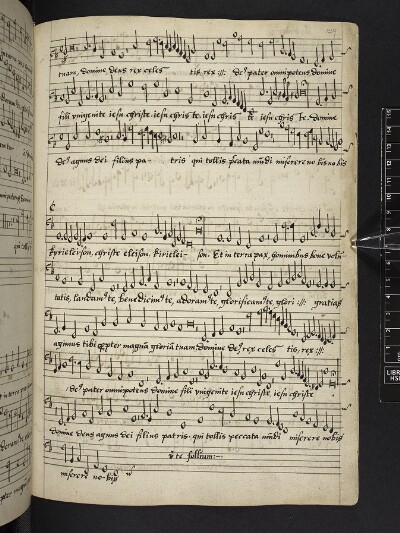 tuam, domine deus rex celes tis rex :||: de9 pater omnipotens domine
fili unigenite iesu christe. iesu chris te. iesu chris te iesu chris te. Domine
de9 agnus dei filius pa- tris qui tollis pctata mudi miserere nobis no bis
Kyrieleison, christe eleison, kirielei- son. Et in terra pax, hominibus bone volu
tatis, laudam9 te, benedicim9 te, adoram9 te, glorificam9 te, glori :||: gratias
agimus tibi propter magna gloria tuam. Domine de9 rex celes tis, rex :||:
de9 pater omnipotens domine fili unigenite iesu christe, iesu christe
domine deus agnus dei filius patris. qui tollis peccata mudi miserere nobis
v te follium:-
miserere no-bis